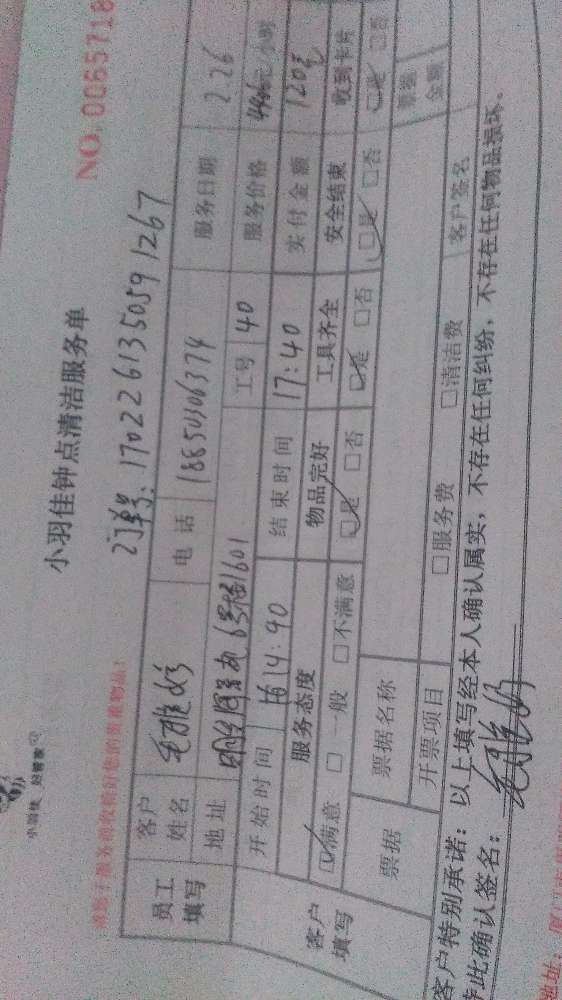 小羽佳 好管家
小羽佳钟点清洁服务单
NO. 0065718
订单号: 170226135059 1267
员工填写 客户姓名 电话 18850306374 服务日期 2.26
地址 6号楼1601 工号 40 服务价格 元/小时
开始时间 结束时间 17:40 实付金额 120元
客户填写 服务态度 物品完好 工具齐全 安全结束 收到卡片
☑满意 □一般 □不满意 ☑是 □否 ☑是 □否 ☑是 □否 ☑是 □否
票据 票据名称 票据金额
开票项目 □服务费 □清洁费 客户签名
客户特别承诺: 以上填写经本人确认属实, 不存在任何纠纷, 不存在任何物品损坏.
特此确认签名:
地址: